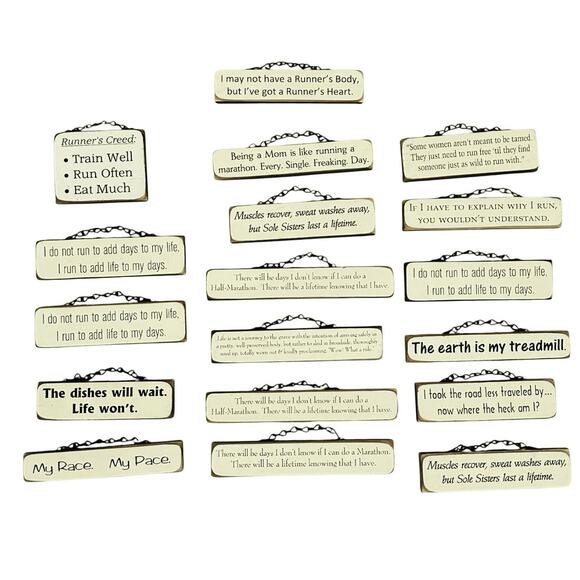 I may not have a Runner's Body,
but I've got a Runner's Heart.
Runner's Creed:
• Train Well
• Run Often
• Eat Much
Being a Mom is like running a
marathon. Every. Single. Freaking. Day.
"Some women aren't meant to be tamed.
They just need to run free 'til they find
someone just as wild to run with."
Muscles recover, sweat washes away,
but Sole Sisters last a lifetime.
If I have to explain why I run,
you wouldn't understand.
I do not run to add days to my life,
I run to add life to my days.
There will be days I don't know if I can do a
Half-Marathon. There will be a lifetime knowing that I have.
I do not run to add days to my life,
I run to add life to my days.
I do not run to add days to my life,
I run to add life to my days.
Life is not a journey to the grave with the intention of arriving safely in
a pretty, well-preserved body, but rather to slid in broadside, thoroughly
used up, totally worn out & loudly proclaiming, "Wow! What a ride."
The earth is my treadmill.
The dishes will wait.
Life won't.
There will be days I don't know if I can do a
Half-Marathon. There will be a lifetime knowing that I have.
I took the road less traveled by...
now where the heck am I?
My Race. My Pace.
There will be days I don't know if I can do a Marathon.
There will be a lifetime knowing that I have.
Muscles recover, sweat washes away,
but Sole Sisters last a lifetime.